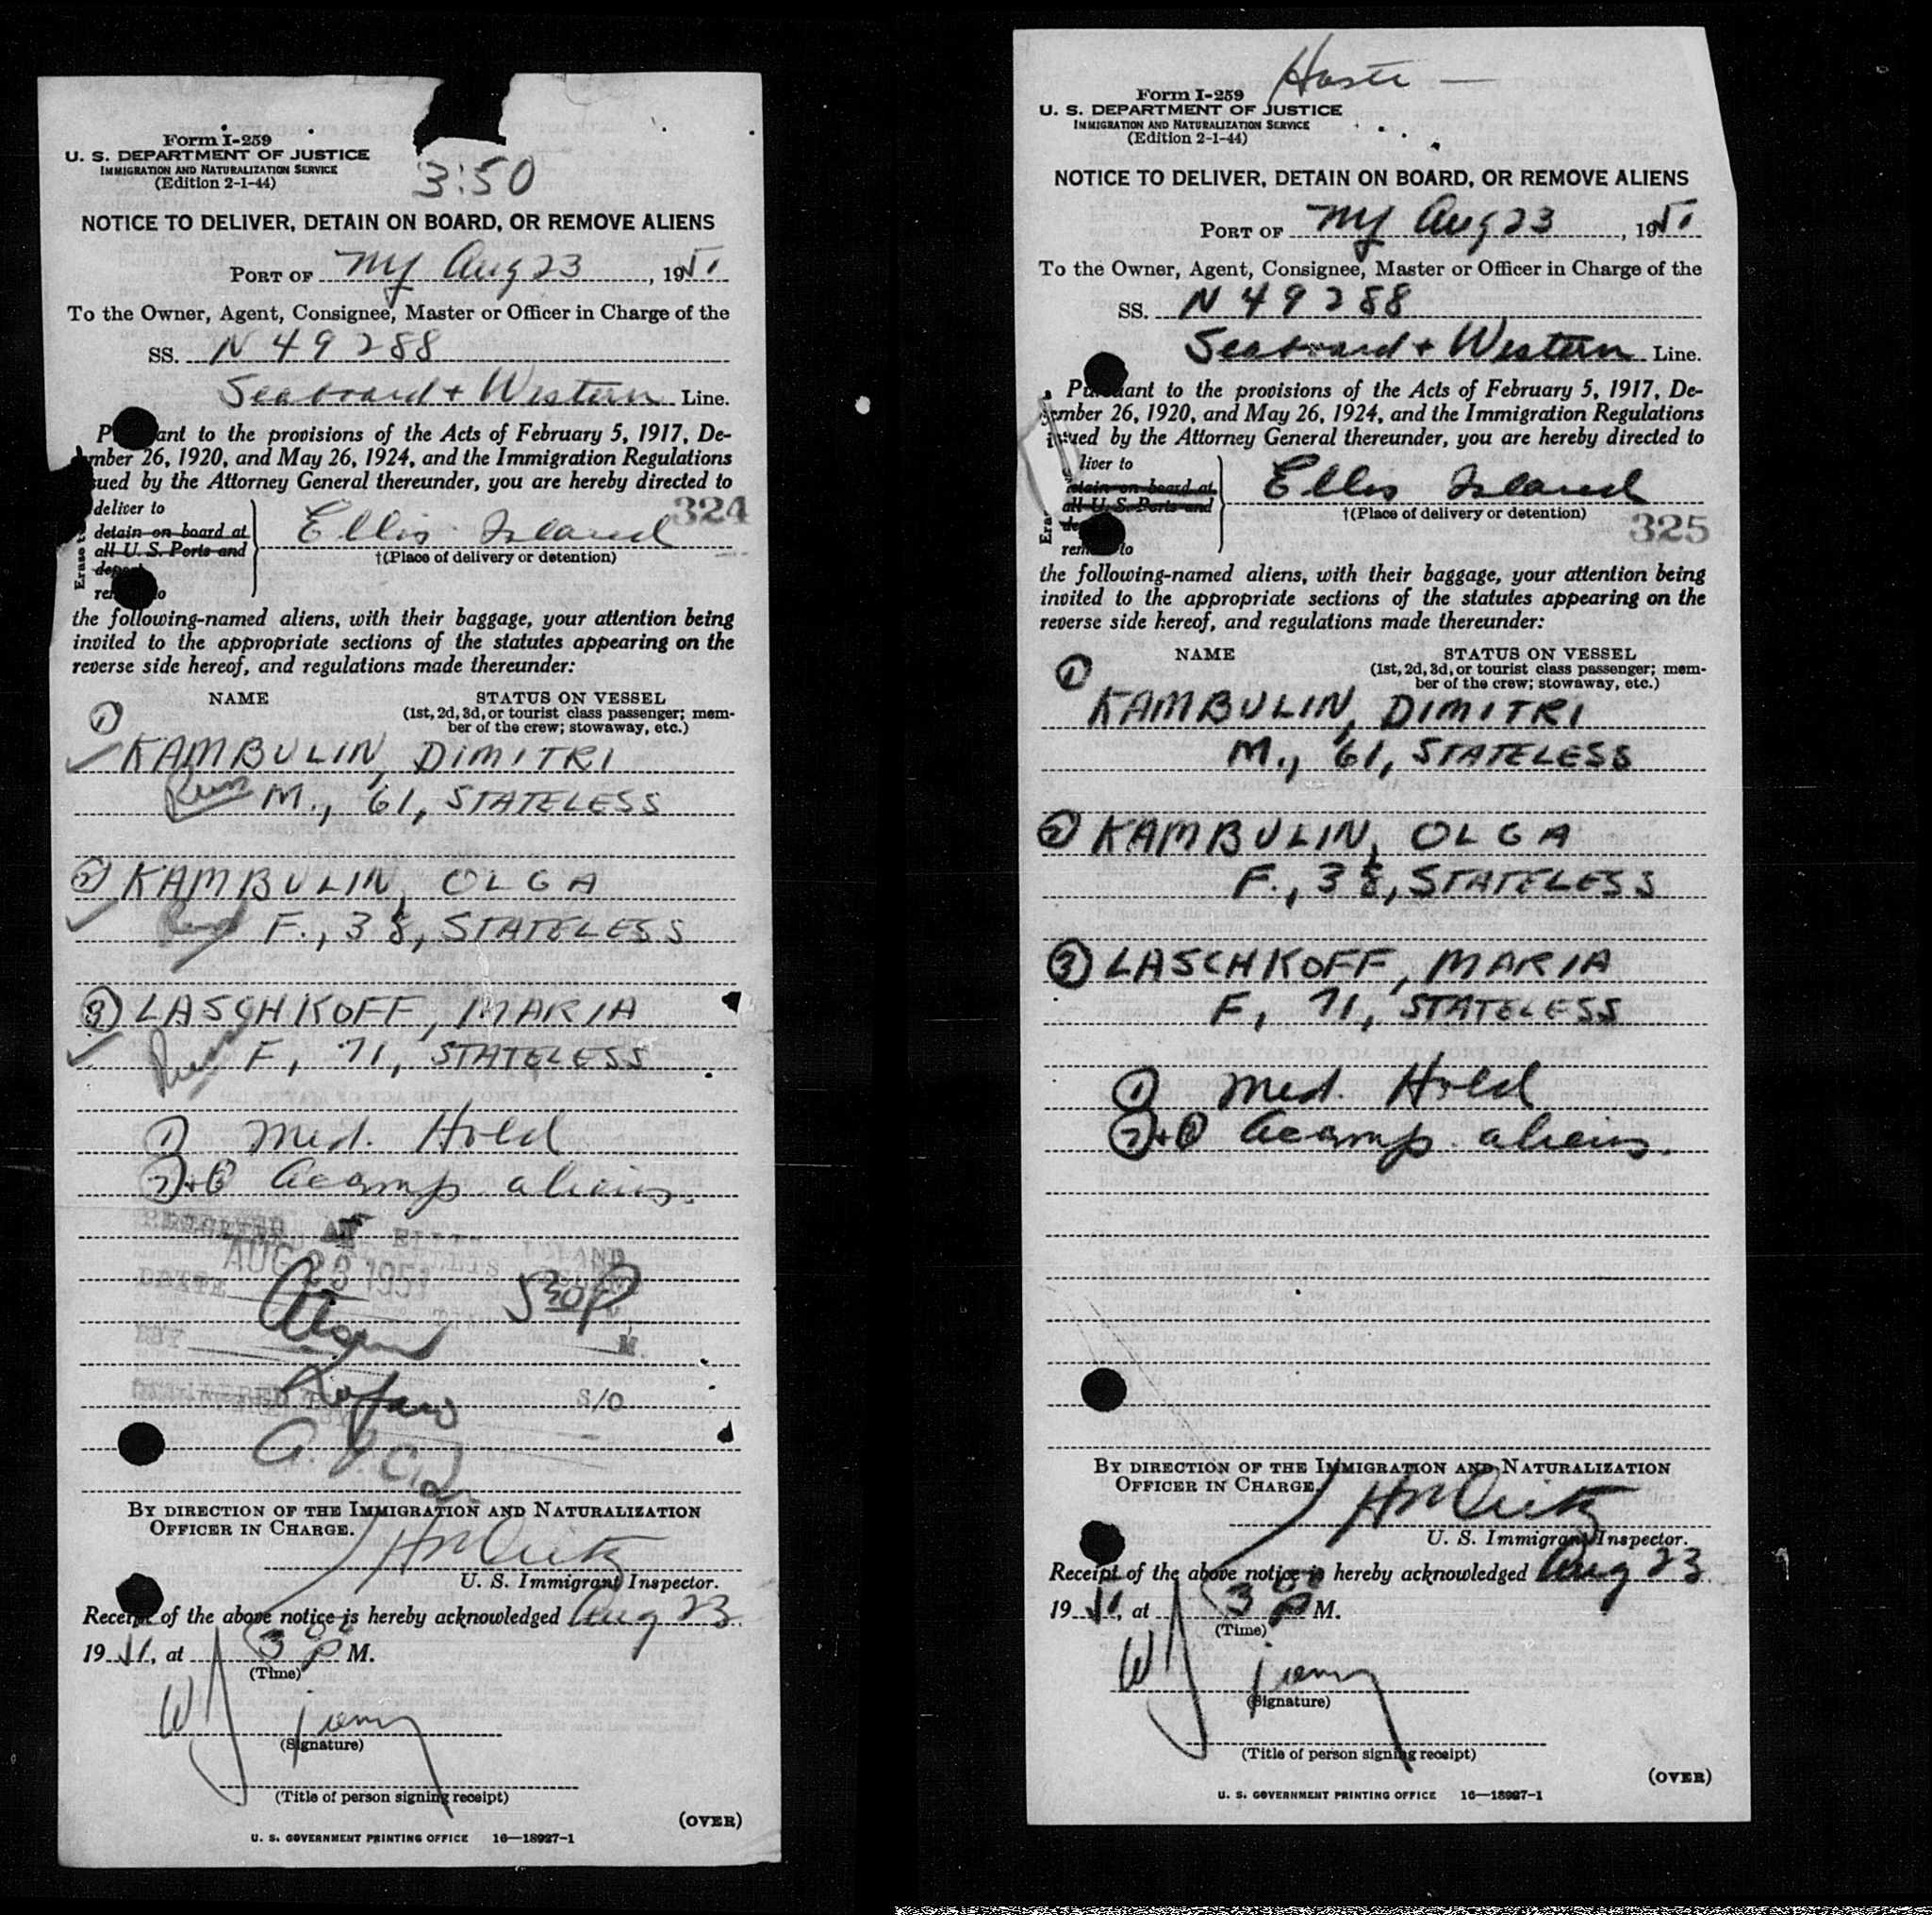 3:50
Form I-259
U. S. DEPARTMENT OF JUSTICE
IMMIGRATION AND NATURALIZATION SERVICE
(Edition 2-1-44)
NOTICE TO DELIVER, DETAIN ON BOARD, OR REMOVE ALIENS
PORT OF NY Aug 23, 1951
To the Owner, Agent, Consignee, Master or Officer in Charge of the
SS. N 49288
Seaboard + Western Line.
ant to the provisions of the Acts of February 5, 1917, De-
mber 26, 1920, and May 26, 1924, and the Immigration Regulations
sued by the Attorney General thereunder, you are hereby directed to
deliver to
detain on board at
all U. S. Ports and
Ellis Island
324
†(Place of delivery or detention)
the following-named aliens, with their baggage, your attention being
invited to the appropriate sections of the statutes appearing on the
reverse side hereof, and regulations made thereunder:
NAME STATUS ON VESSEL
(1st, 2d, 3d, or tourist class passenger; mem-
ber of the crew; stowaway, etc.)
1 KAMBULIN, DIMITRI
M., 61, STATELESS
2 KAMBULIN, OLGA
F., 38, STATELESS
3 LASCHKOFF, MARIA
F, 71, STATELESS
1 Med. Hold
2 + 3 Accomp. aliens.
RECEIVED AT ELLIS ISLAND
AUG 23 1951
DATE
530P
BY M.
S/O
BY DIRECTION OF THE IMMIGRATION AND NATURALIZATION
OFFICER IN CHARGE.
U. S. Immigrant Inspector.
Receipt of the above notice is hereby acknowledged Aug 23
1951, at 3 P M.
(Time)
(Signature)
(Title of person signing receipt)
(OVER)
U. S. GOVERNMENT PRINTING OFFICE 16—18927-1
Form I-259
U. S. DEPARTMENT OF JUSTICE
IMMIGRATION AND NATURALIZATION SERVICE
(Edition 2-1-44)
NOTICE TO DELIVER, DETAIN ON BOARD, OR REMOVE ALIENS
PORT OF NY Aug 23, 1951
To the Owner, Agent, Consignee, Master or Officer in Charge of the
SS. N 49288
Seaboard + Western Line.
Pu ant to the provisions of the Acts of February 5, 1917, De-
ember 26, 1920, and May 26, 1924, and the Immigration Regulations
issued by the Attorney General thereunder, you are hereby directed to
liver to
detain on board at
all U. S. Ports and
Ellis Island
†(Place of delivery or detention)
325
the following-named aliens, with their baggage, your attention being
invited to the appropriate sections of the statutes appearing on the
reverse side hereof, and regulations made thereunder:
NAME STATUS ON VESSEL
(1st, 2d, 3d, or tourist class passenger; mem-
ber of the crew; stowaway, etc.)
1 KAMBULIN, DIMITRI
M., 61, STATELESS
2 KAMBULIN, OLGA
F., 38, STATELESS
3 LASCHKOFF, MARIA
F, 71, STATELESS
1 Med. Hold
2 + 3 Accomp. aliens.
BY DIRECTION OF THE IMMIGRATION AND NATURALIZATION
OFFICER IN CHARGE.
U. S. Immigrant Inspector.
Receipt of the above notice is hereby acknowledged Aug 23
1951, at 3 P M.
(Time)
(Signature)
(Title of person signing receipt)
(OVER)
U. S. GOVERNMENT PRINTING OFFICE 16—18927-1